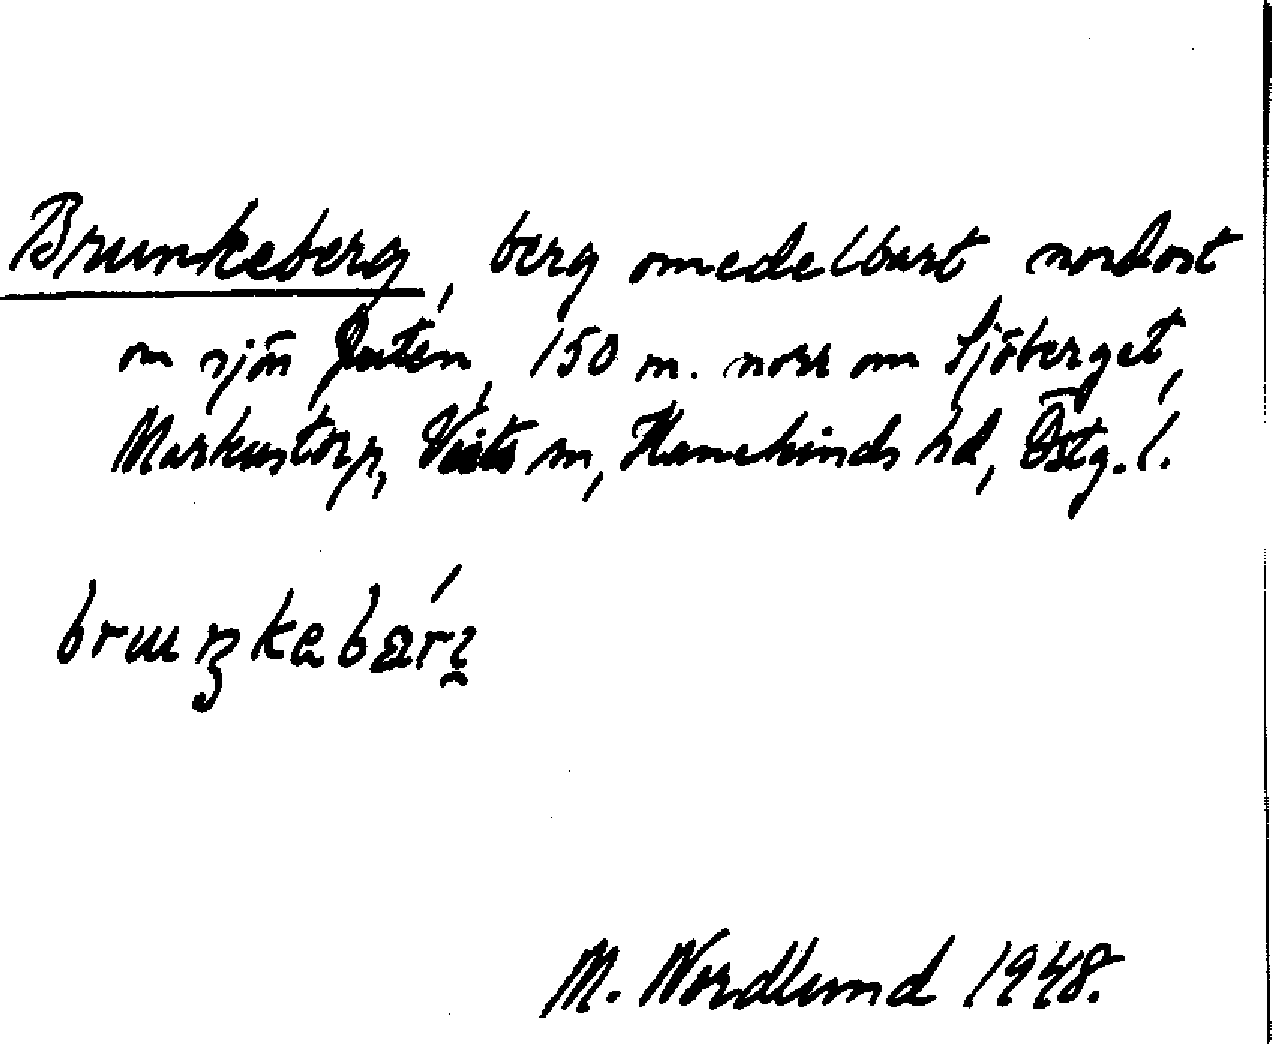 Brunkeberg, berg omedelbart nordost
om sjön Juten, 150 m. norr om Sjöberget,
Markustorp, m, Hanekinds hd, Östg. l.
brɯŋkebærɩ
M. Nordlund 1948.